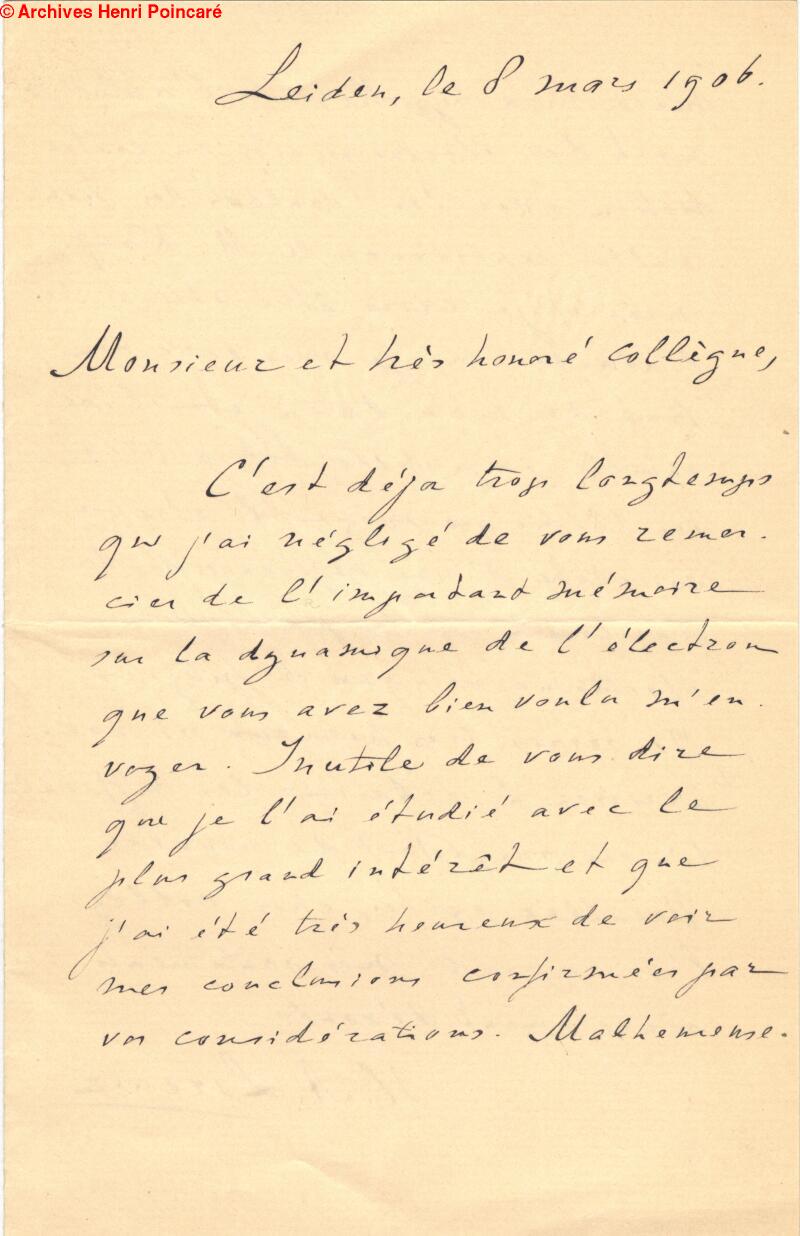 © Archives Henri Poincaré
Leiden, le 8 mars 1906.
Monsieur et très honoré collègue,
C'est déja trop longtemps
que j'ai négligé de vous remer-
cier de l'important mémoire
sur la dynamique de l'électron
que vous avez bien voulu m'en-
voyer. Inutile de vous dire
que je l'ai étudié avec le
plus grand intérêt et que
j'ai été très heureux de voir
mes conclusions confirmées par
vos considérations. Malheureuse-